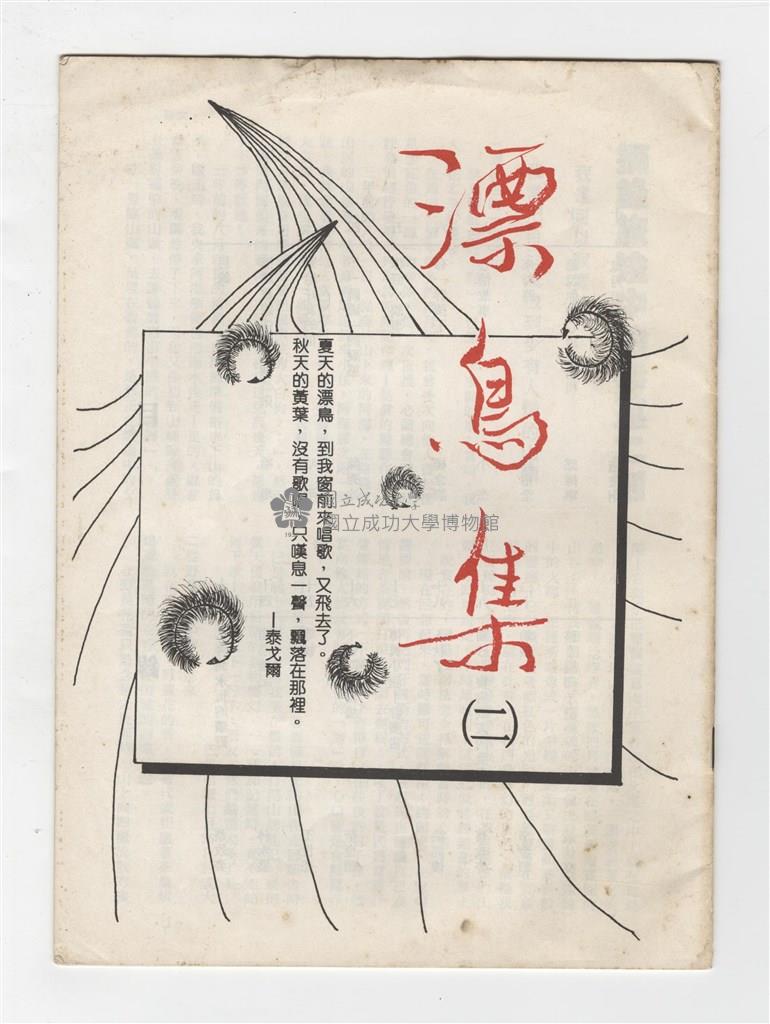 漂鳥集
(二)
夏天的漂鳥，到我窗前來唱歌，又飛去了。
秋天的黃葉，沒有歌唱，只嘆息一聲，飄落在那裡。
—泰戈爾
國立成功大學
國立成功大學博物館